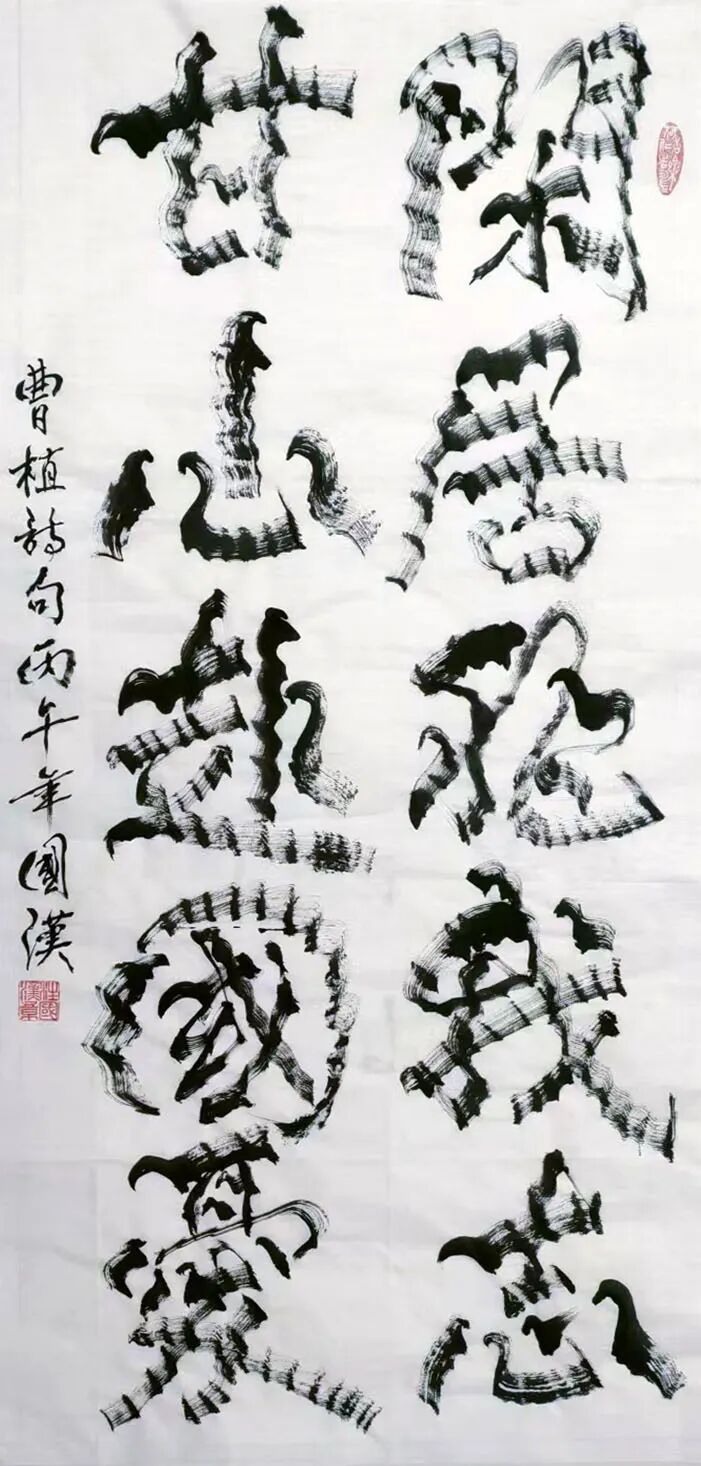 閑居非我志
甘心赴國憂
曹植詩句丙午年國漢